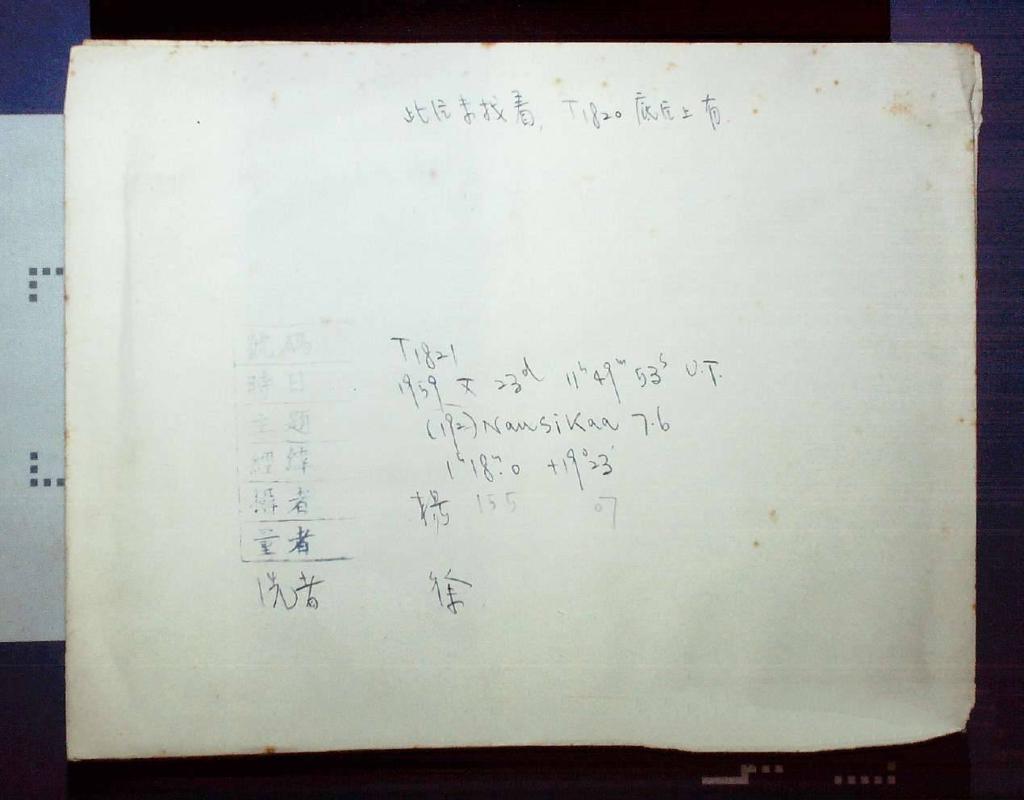 此片未找着, T1820 底片上有.
號碼 T1821
時日 1959 X 23ᵈ 11ʰ49ᵐ53ˢ U.T.
主題 (192) Nausikaa 7.6
經緯 1ʰ18ᵐ.0 +19°23'
攝者 楊 155 07
量者
洗者 徐